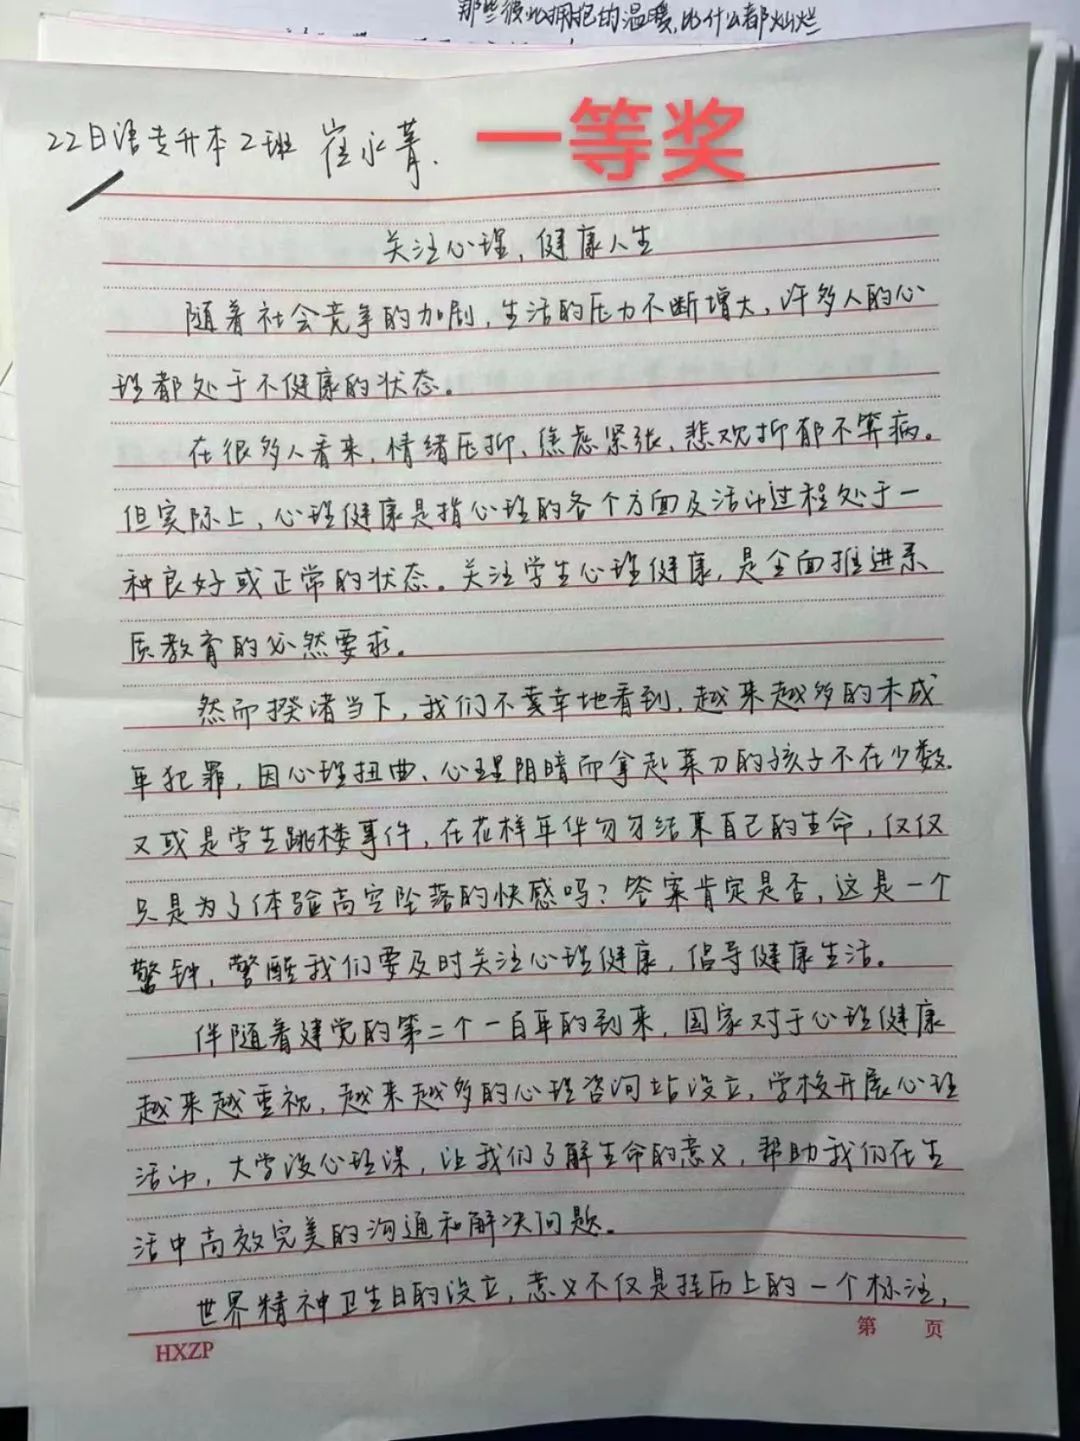 那些彼此拥抱的温暖,比什么都灿烂
22日语专升本2班 崔永菁.
一等奖
关注心理,健康人生
随着社会竞争的加剧,生活的压力不断增大,许多人的心
理都处于不健康的状态。
在很多人看来,情绪压抑、焦虑紧张、悲观抑郁不算病。
但实际上,心理健康是指心理的各个方面及活动过程处于一
种良好或正常的状态。关注学生心理健康,是全面推进素
质教育的必然要求。
然而揆诸当下,我们不幸地看到,越来越多的未成
年犯罪,因心理扭曲、心理阴暗而拿起菜刀的孩子不在少数.
又或是学生跳楼事件,在花样年华匆匆结束自己的生命,仅仅
只是为了体验高空坠落的快感吗?答案肯定是否,这是一个
警钟,警醒我们要及时关注心理健康,倡导健康生活。
伴随着建党的第二个一百年的到来,国家对于心理健康
越来越重视,越来越多的心理咨询站设立,学校开展心理
活动,大学设心理课,让我们了解生命的意义,帮助我们在生
活中高效完美的沟通和解决问题。
世界精神卫生日的设立,意义不仅是挂历上的一个标注,
第 页
HXZP